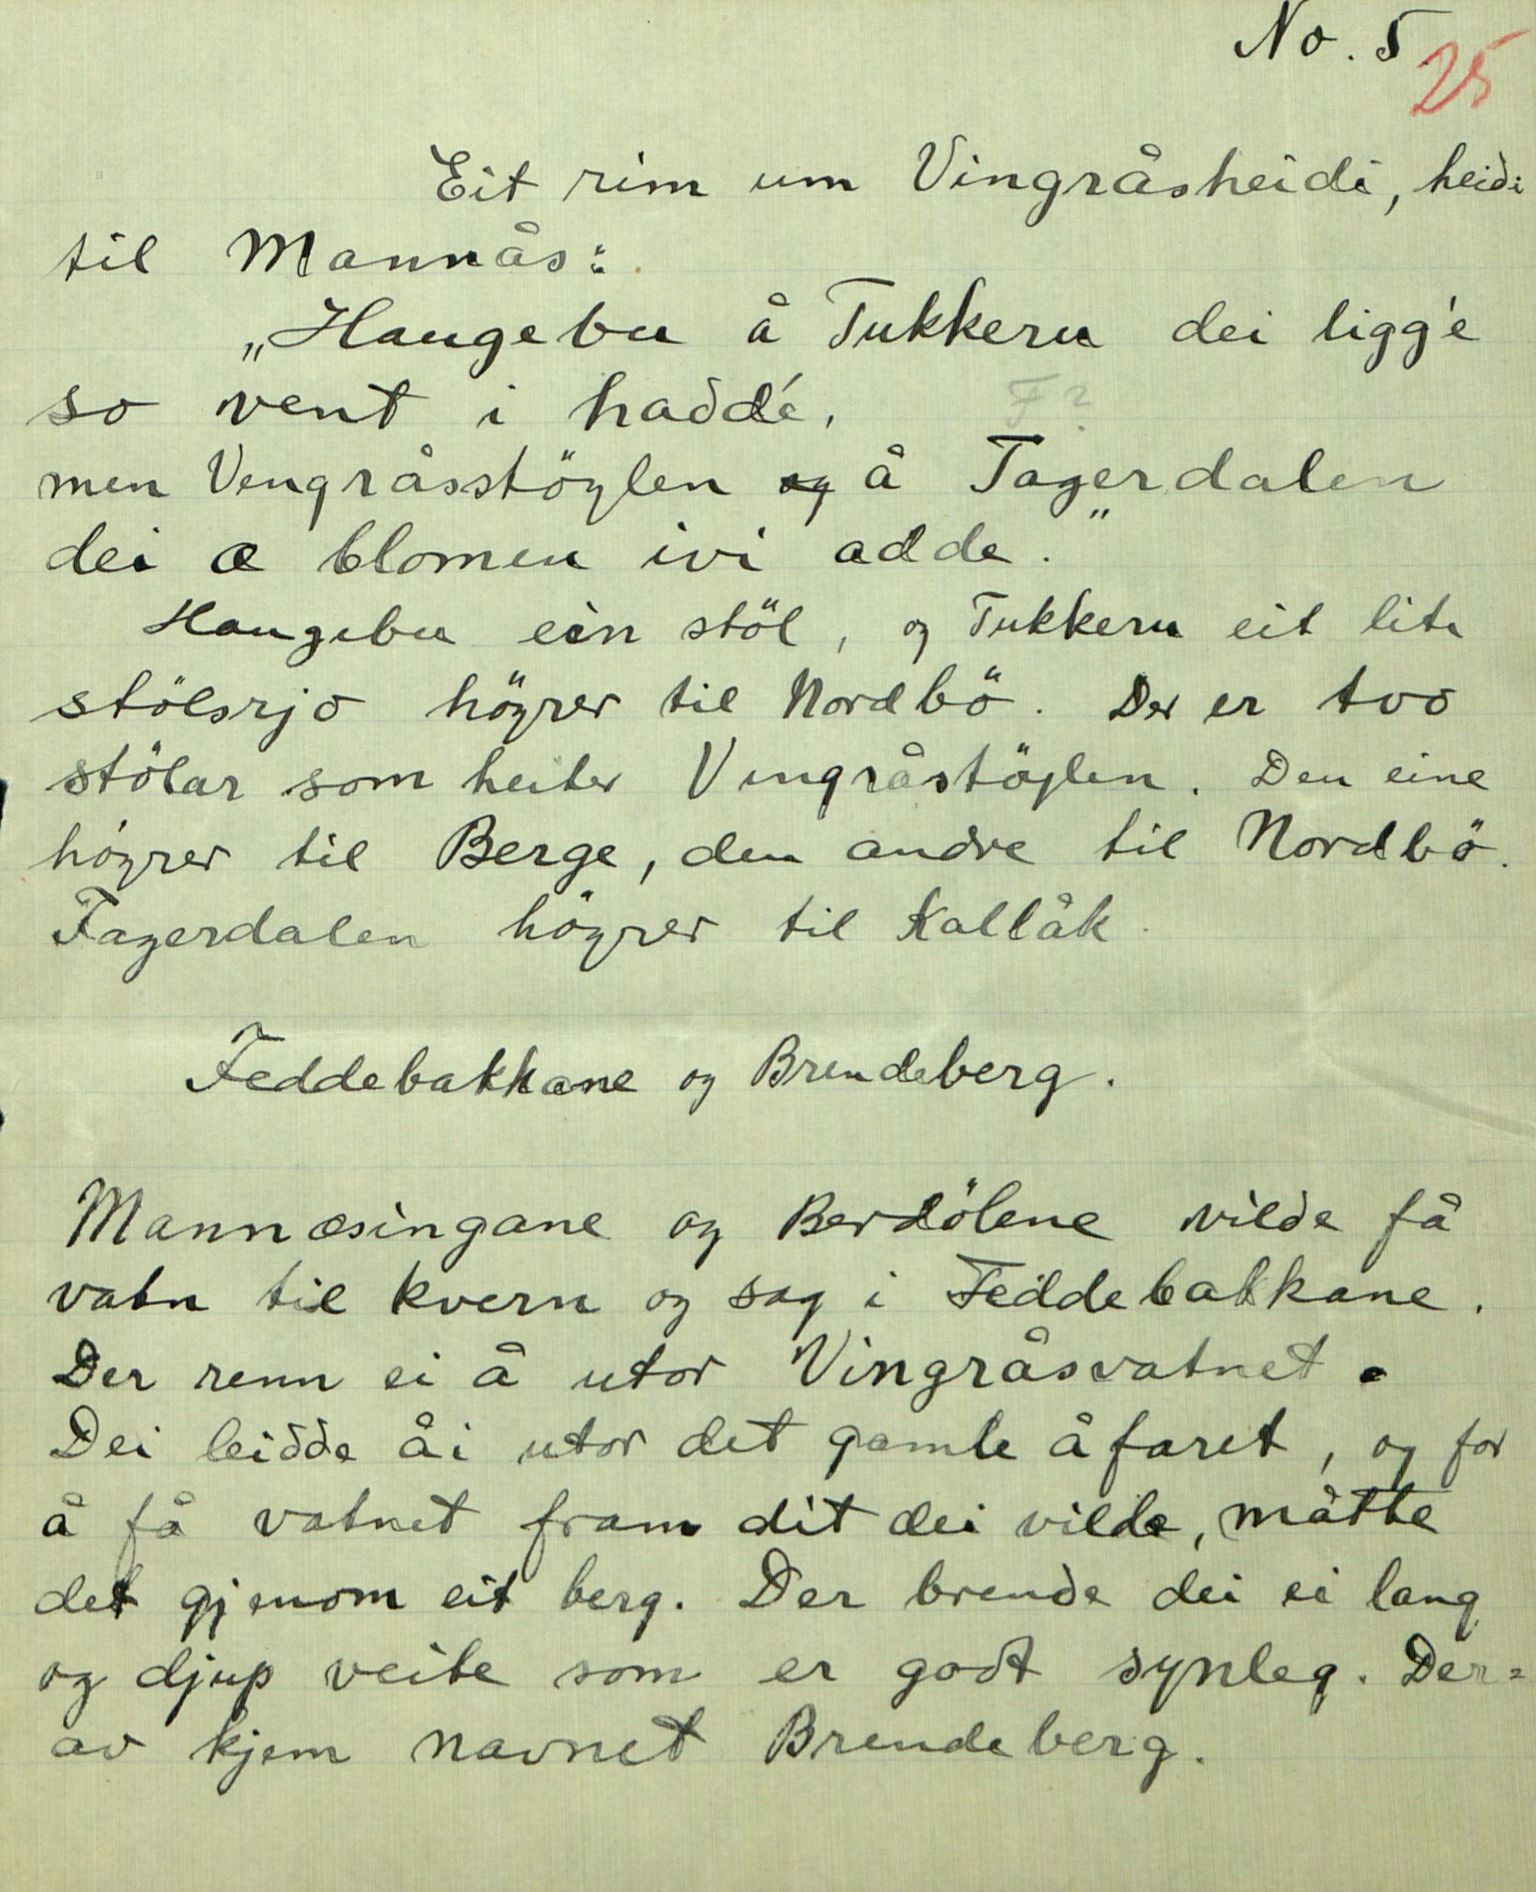 No. 5
25
Eit rim um Vingråsheidi, heidi
til Mannås:
„Haugebu å Tukkeru dei ligg'e
so vent i haddé,
F?
men Vengråsstöylen og å Tagerdalen
dei æ blomen ivi adde."
Haugebu ein stöl, og Tukkeru eit lite
stölsrjo höyrer til Nordbö. Der er tvo
stölar som heiter Vingråstöylen. Den eine
höyrer til Berge, den andre til Nordbö.
Fagerdalen höyrer til Kallåk.
Feddebakkane og Brendeberg.
Mannæsingane og Berdölene vilde få
vatn til kvern og sag i Feddebakkane.
Der renn ei å utor Vingråsvatnet.
Dei leidde åi utor det gamle åfaret, og for
å få vatnet fram dit dei vilde, måtte
det gjenom eit berg. Der brende dei ei lang
og djup veite som er godt synleg. Der=
av kjem navnet Brendeberg.